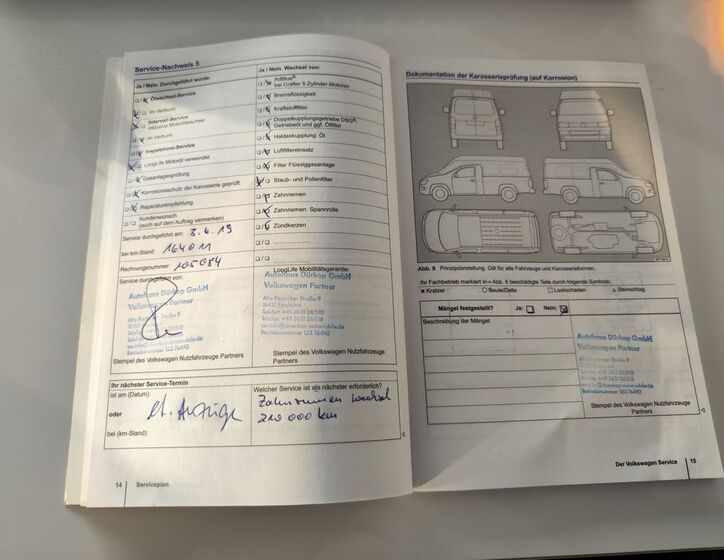 Service-Nachweis 5
Ja / Nein. Durchgeführt wurde:
Ölwechsel-Service
im Verbund
Intervall-Service
inklusive Motorölwechsel
im Verbund
Inspektions-Service
LongLife Motoröl verwendet
Gasanlagenprüfung
Korrosionsschutz der Karosserie geprüft
Reparaturempfehlung
Kundenwunsch
(auch auf dem Auftrag vermerken)
Service durchgeführt am: 3.4.19
bei km-Stand: 164011
Rechnungsnummer: 105084
Service durchgeführt von:
Autohaus Dürkop GmbH
Volkswagen Partner
Stempel des Volkswagen Nutzfahrzeuge Partners
Ja / Nein. Wechsel von:
AdBlue®
bei Crafter 5-Zylinder-Motoren
Bremsflüssigkeit
Kraftstofffilter
Doppelkupplungsgetriebe DSG®:
Getriebeöl und ggf. Ölfilter
Haldexkupplung: Öl
Luftfiltereinsatz
Filter Flüssiggasanlage
Staub- und Pollenfilter
Zahnriemen
Zahnriemen: Spannrolle
Zündkerzen
LongLife Mobilitätsgarantie:
Autohaus Dürkop GmbH
Volkswagen Partner
Stempel des Volkswagen Nutzfahrzeuge
Partners
Ihr nächster Service-Termin
ist am (Datum):
oder lt. Anzeige
bei (km-Stand):
Welcher Service ist als nächster erforderlich?
Zahnriemen wechsel
210 000 km
14 Serviceplan
Dokumentation der Karosserieprüfung (auf Korrosion)
Abb. 8 Prinzipdarstellung. Gilt für alle Fahrzeuge und Karosserieformen.
Ihr Fachbetrieb markiert in Abb. 8 beschädigte Teile durch folgende Symbole:
Kratzer Beule/Delle Lackschaden Steinschlag
Mängel festgestellt? Ja: Nein:
Beschreibung der Mängel:
Autohaus Dürkop GmbH
Volkswagen Partner
Stempel des Volkswagen Nutzfahrzeuge
Partners
Der Volkswagen Service 15